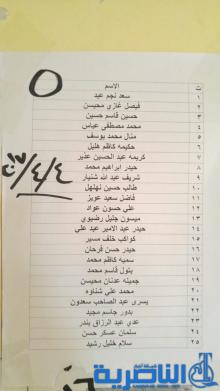 ت الاسم
١ سعد نجم عبد
٢ فيصل غازي محيسن
٣ حسين قاسم حسين
٤ محمد مصطفى عباس
٥ منال محمد يوسف
٦ حكيمه كاظم هليل
٧ كريمه عبد الحسين عذير
٨ حيدر ابراهيم محمد
٩ شريف عبد الله شنيار
١٠ طالب حسين نهلهل
١١ فاضل سعيد عويز
١٢ علي حسون عواد
١٣ ميسون جليل رضيوي
١٤ حيدر عبد الامير عبد علي
١٥ كواكب خلف مسير
١٦ حيدر حسن فرحان
١٧ سميه كاظم محمد
١٨ بتول قاسم محمد
١٩ جميله عدنان محيسن
٢٠ محمد علي شناوه
٢١ يسرى عبد الصاحب سعدون
٢٢ بدور جاسم مجيد
٢٣ عدي عبد الرزاق بندر
٢٤ سلمان عسكر حسن
٢٥ سلام خليل رشيد
الناصرية